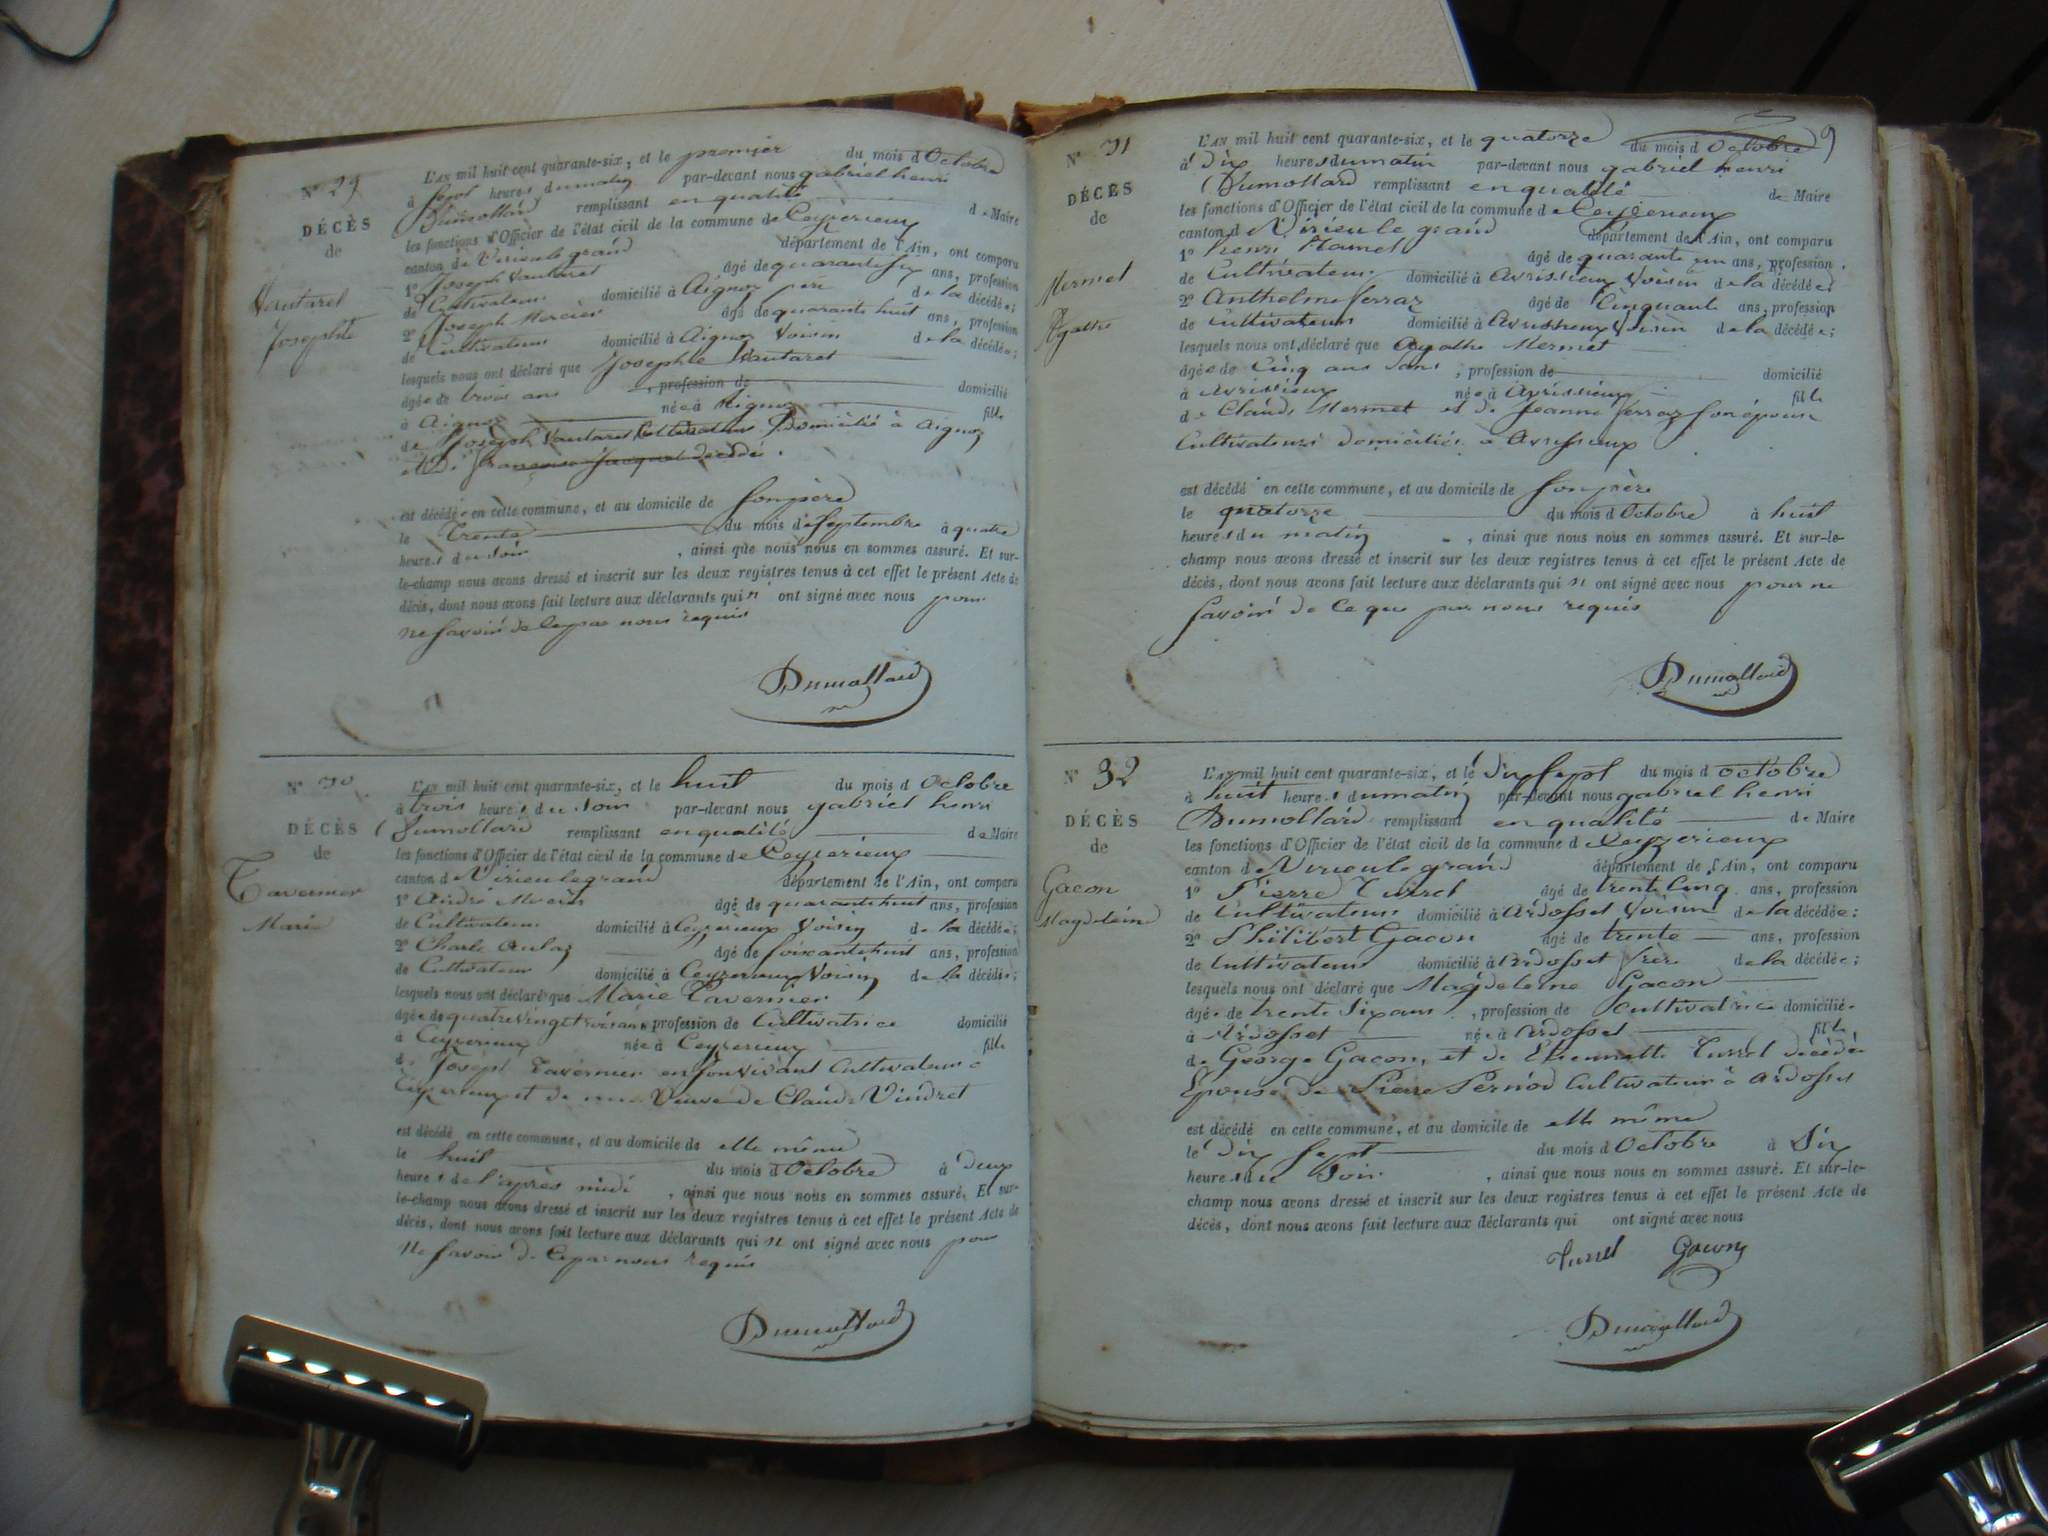 Nº 29
DÉCÈS
de
Vautaret
Josephte
L'AN mil huit cent quarante-six, et le premier du mois d'Octobre
à sept heures du matin par-devant nous gabriel henri
Dumollard remplissant en qualité de Maire
les fonctions d'Officier de l'état civil de la commune de Ceyzerieux
canton de Virieulegrand département de l'Ain, ont comparu
1º Joseph Vautaret âgé de quarante six ans, profession
de Cultivateur domicilié à Aignoz père de la décédée;
2º Joseph Mercier âgé de quarante huit ans, profession
de Cultivateur domicilié à Aignoz Voisin de la décédée;
lesquels nous ont déclaré que Josephte Vautaret
âgée de trois ans, profession de domicilié
à Aignoz née à Aignoz fille
de Joseph Vautaret Cultivateur Domicilié à Aignoz
et De françoise Jacquet décédé.
est décédée en cette commune, et au domicile de son père
le Trente du mois de Septembre à quatre
heures du soir, ainsi que nous nous en sommes assuré. Et sur-
le-champ nous avons dressé et inscrit sur les deux registres tenus à cet effet le présent Acte de
décès, dont nous avons fait lecture aux déclarants qui n'ont signé avec nous pour
ne savoir de ce par nous requis
Dumollard
Nº 30
DÉCÈS
de
Tavernier
Marie
L'AN mil huit cent quarante-six, et le huit du mois d Octobre
à trois heures du soir par-devant nous gabriel henri
Dumollard remplissant en qualité de Maire
les fonctions d'Officier de l'état civil de la commune de Ceyzerieux
canton d Virieulegrand département de l'Ain, ont comparu
1º André âgé de quarantehuit ans, profession
de Cultivateur domicilié à Ceyzerieux Voisin de la décédée;
2º Charle âgé de soixantehuit ans, profession
de Cultivateur domicilié à Ceyzerieux Voisin de la décédée;
lesquels nous ont déclaré que Marie Tavernier
âgée de quatrevingt trois ans, profession de Cultivatrice domicilié
à Ceyzerieux née à Ceyzerieux fille
de Joseph Tavernier en son vivant Cultivateur à
Ceyzerieux et de Veuve de Claude Vindret
est décédé en cette commune, et au domicile de elle même
le huit du mois d'Octobre à Deux
heures de l'après midi, ainsi que nous nous en sommes assuré. Et sur-
le-champ nous avons dressé et inscrit sur les deux registres tenus à cet effet le présent Acte de
décès, dont nous avons fait lecture aux déclarants qui n'ont signé avec nous pour
ne savoir de ce par nous requis
Dumollard
9
Nº 31
DÉCÈS
de
Mermet
Agathe
L'AN mil huit cent quarante-six, et le quatorze du mois d Octobre
à Dix heures du matin par-devant nous gabriel henri
Dumollard remplissant en qualité de Maire
les fonctions d'Officier de l'état civil de la commune de Ceyzerieux
canton d Virieulegrand département de l'Ain, ont comparu
1º henri âgé de quarante un ans, profession
de Cultivateur domicilié à Avrissieux Voisin de la décédée;
2º Anthelme ferraz âgé de Cinquante ans, profession
de Cultivateur domicilié à Avrissieux Voisin de la décédée;
lesquels nous ont déclaré que Agathe Mermet
âgée de Cinq ans, profession de domicilié
à Avrissieux née à Avrissieux fille
de Claude Mermet et de Jeanne ferraz son épouse
Cultivateurs domiciliés à Avrissieux
est décédé en cette commune, et au domicile de son père
le quatorze du mois d Octobre à huit
heures du matin, ainsi que nous nous en sommes assuré. Et sur-le-
champ nous avons dressé et inscrit sur les deux registres tenus à cet effet le présent Acte de
décès, dont nous avons fait lecture aux déclarants qui n'ont signé avec nous pour ne
savoir de Ce que par nous requis
Dumollard
Nº 32
DÉCÈS
de
Gacon
Magdeleine
L'AN mil huit cent quarante-six, et le Dix sept du mois d octobre
à huit heures du matin par-devant nous gabriel henri
Dumollard remplissant en qualité de Maire
les fonctions d'Officier de l'état civil de la commune d Ceyzerieux
canton de Virieulegrand département de l'Ain, ont comparu
1º Pierre Turrel âgé de trente Cinq ans, profession
de Cultivateur domicilié à Ardosset Voisin de la décédée;
2º Philibert Gacon âgé de trente ans, profession
de Cultivateur domicilié à Ardosset frère de la décédée;
lesquels nous ont déclaré que Magdeleine Gacon
âgée de trente Six ans, profession de Cultivatrice domicilié
à Ardosset née à Ardosset fille
de George Gacon, et de Etiennette Turrel décédée
Epouse de Pierre Pernod Cultivateur à Ardosset
est décédé en cette commune, et au domicile de elle même
le Dix sept du mois d Octobre à Six
heures du Soir, ainsi que nous nous en sommes assuré. Et sur-le-
champ nous avons dressé et inscrit sur les deux registres tenus à cet effet le présent Acte de
décès, dont nous avons fait lecture aux déclarants qui ont signé avec nous
Turrel Gacon
Dumollard